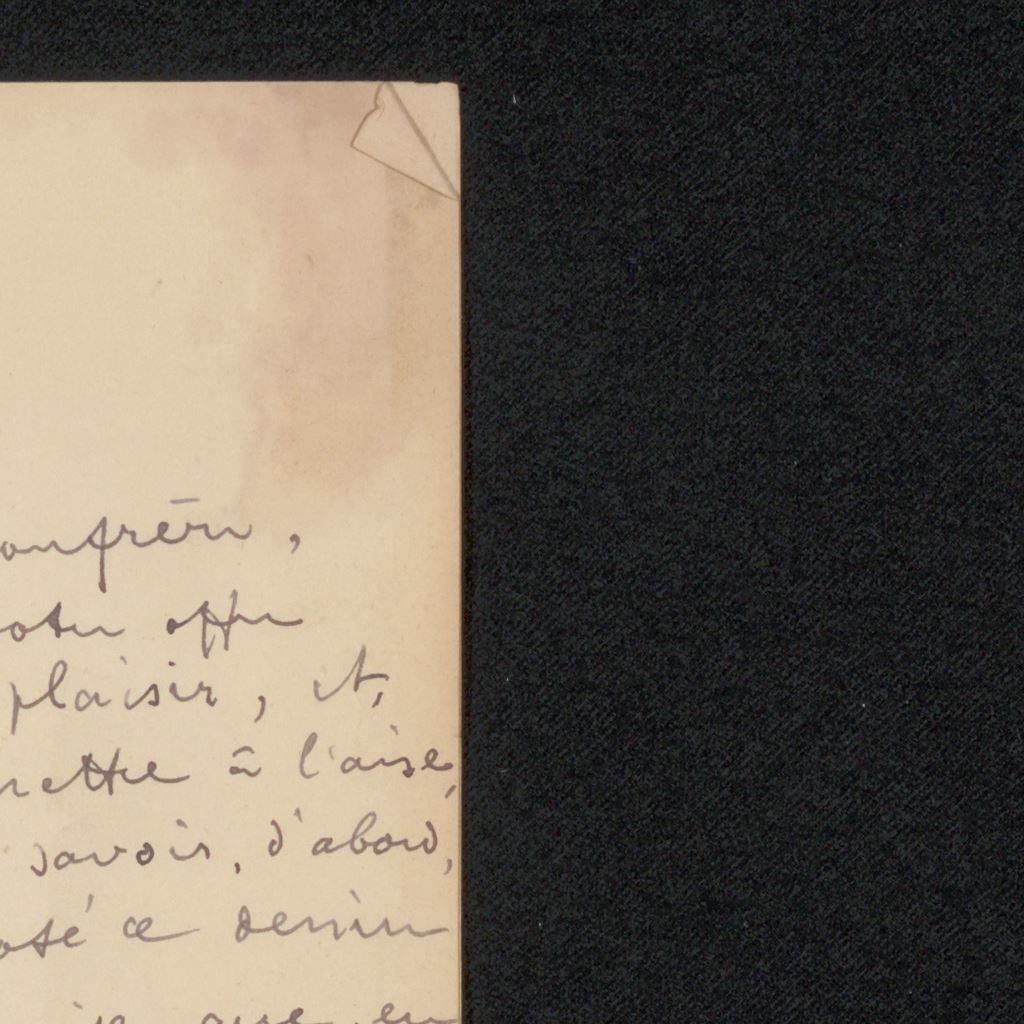 onfrère,
otre offre
plaisir, et,
mettre à l'aise,
savoir, d'abord,
osé ce dessin
que en